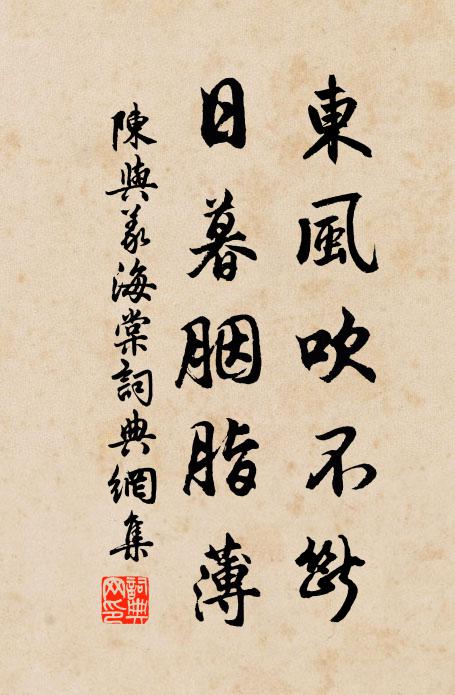 東風吹不斷
日暮胭脂薄
陳與義海棠詞典網集
詞典网印